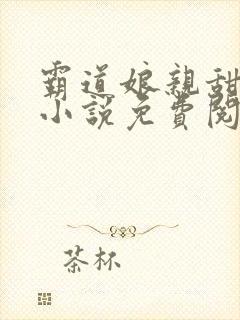 霸道娘親甜
小說免費閱
茶杯